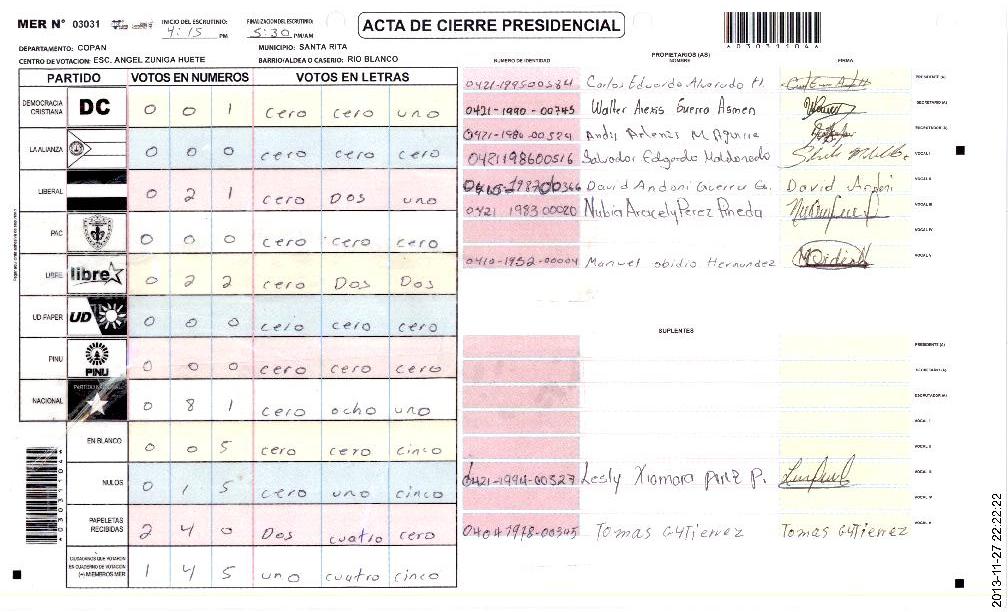 MER N° 03031
INICIO DEL ESCRUTINIO: 4:15 PM
FINALIZACION DEL ESCRUTINIO: 5:30 PM/AM
ACTA DE CIERRE PRESIDENCIAL
DEPARTAMENTO: COPAN
MUNICIPIO: SANTA RITA
CENTRO DE VOTACION: ESC. ANGEL ZUNIGA HUETE
BARRIO/ALDEA O CASERIO: RIO BLANCO
PARTIDO VOTOS EN NUMEROS VOTOS EN LETRAS
DEMOCRACIA CRISTIANA DC 0 0 1 cero cero uno
LA ALIANZA 0 0 0 cero cero cero
LIBERAL 0 2 1 cero Dos uno
PAC 0 0 0 cero cero cero
LIBRE libre 0 2 2 cero Dos Dos
UD FAPER UD 0 0 0 cero cero cero
PINU PINU 0 0 0 cero cero cero
NACIONAL 0 8 1 cero ocho uno
EN BLANCO 0 0 5 cero cero cinco
NULOS 0 1 5 cero uno cinco
PAPELETAS RECIBIDAS 2 4 0 Dos cuatro cero
CIUDADANOS QUE VOTARON EN CUADERNO DE VOTACION (+) MIEMBROS MER 1 4 5 uno cuatro cinco
PROPIETARIOS (AS)
NUMERO DE IDENTIDAD NOMBRE FIRMA
0421-199500584 Carlos Eduardo Alvarado H. PRESIDENTE (A)
0421-1990-00745 Walter Alexis Guerra SECRETARIO (A)
0421-1986-00524 Andy M Aguirre ESCRUTADOR (A)
0421198600516 Salvador Edgardo Maldonado VOCAL I
David Andoni Guerra G. David Andoni VOCAL II
0421 1983 00020 Nubia Aracely Perez Pineda VOCAL III
VOCAL IV
0410-1952-00004 Manuel obidio Hernandez VOCAL V
SUPLENTES
PRESIDENTE (A)
SECRETARIO (A)
ESCRUTADOR (A)
VOCAL I
VOCAL II
0421-1994-00327 Lesly Xiomara P. VOCAL III
VOCAL IV
04041978-00345 Tomas Gutierrez Tomas Gutierrez VOCAL V
2013-11-27 22:22:22